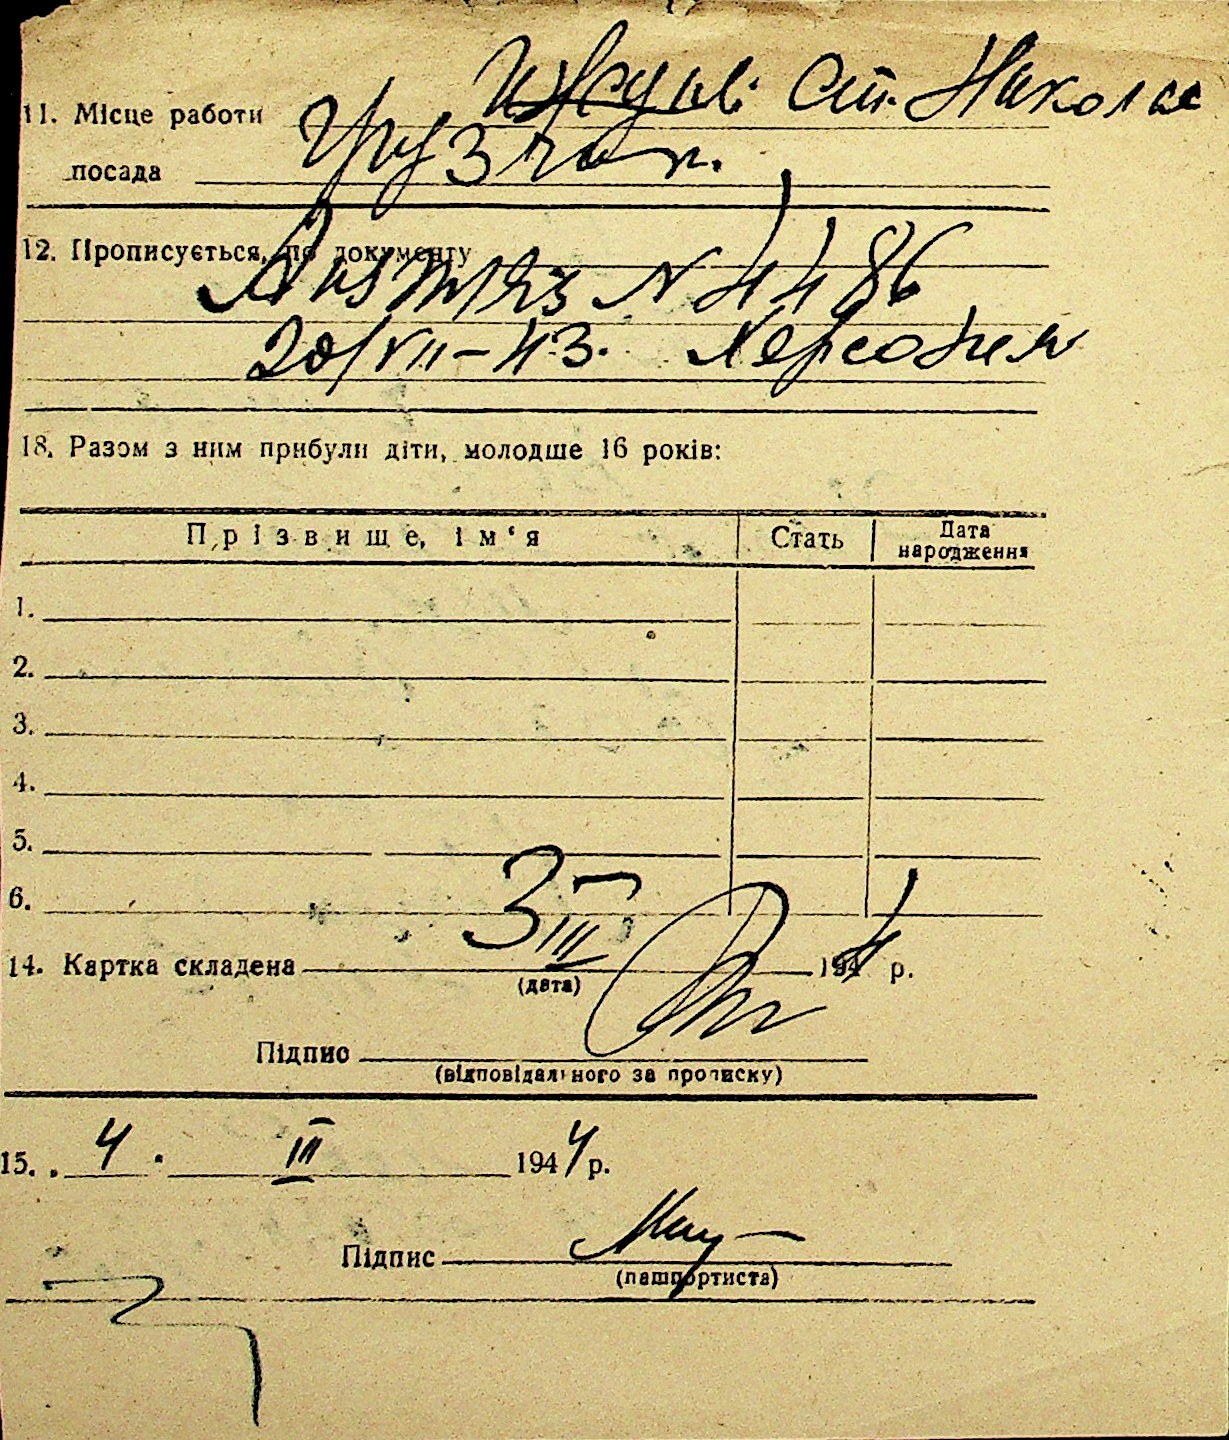 Ст. Николае
11. Місце работи
грузчик.
посада
12. Прописується, по документу
Аusweis N 4486
20/VII-43. Херсоним
18. Разом з ним прибули діти, молодше 16 років:
Прізвище, ім‘я Стать Дата народження
1.
2.
3.
4.
5.
6.
3 III
14. Картка складена 1944 р.
(дата)
Підпис
(відповідального за прописку)
15. 4. III 1944 р.
Підпис
(пашпортиста)